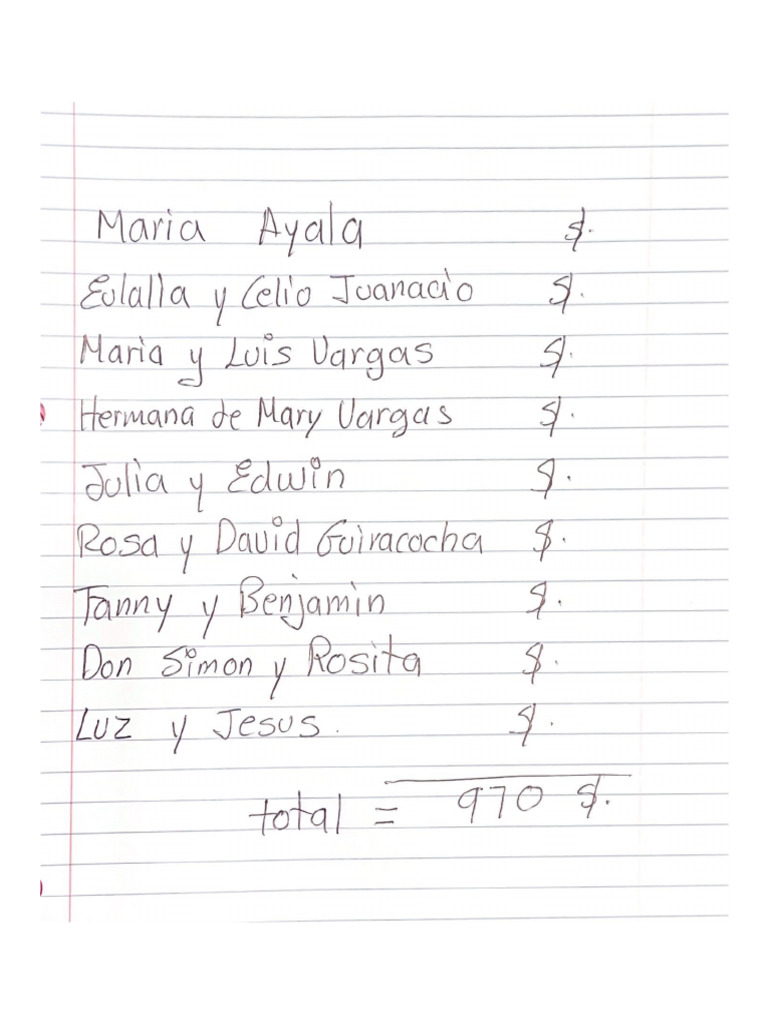 Maria Ayala $.
Eulalia y Celio Juanacio $.
Maria y Luis Vargas $.
Hermana de Mary Vargas $.
Julia y Edwin $.
Rosa y David Guiracocha $.
Fanny y Benjamin $.
Don Simon y Rosita $.
Luz y Jesus. $.
total = 970 $.